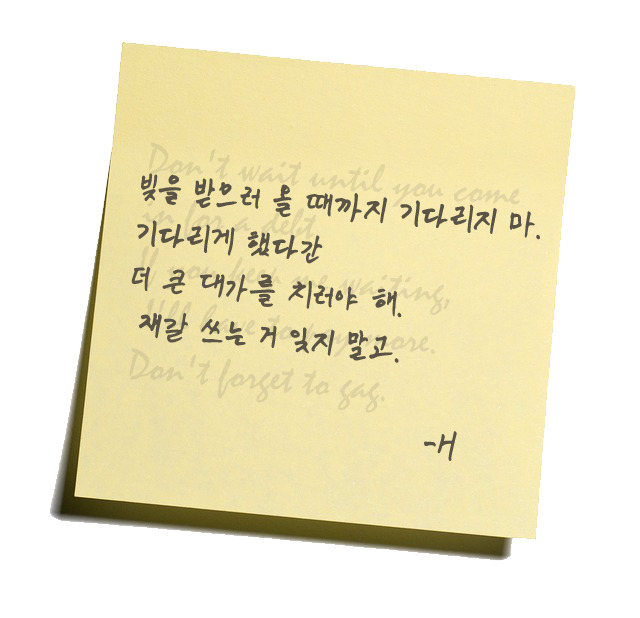 빚을 받으러 올 때까지 기다리지 마.
기다리게 했다간
더 큰 대가를 치러야 해.
재갈 쓰는 거 잊지 말고.
-H
Don't wait until you come
in for a debt
If you keep me waiting,
have to pay more.
Don't forget to gag.